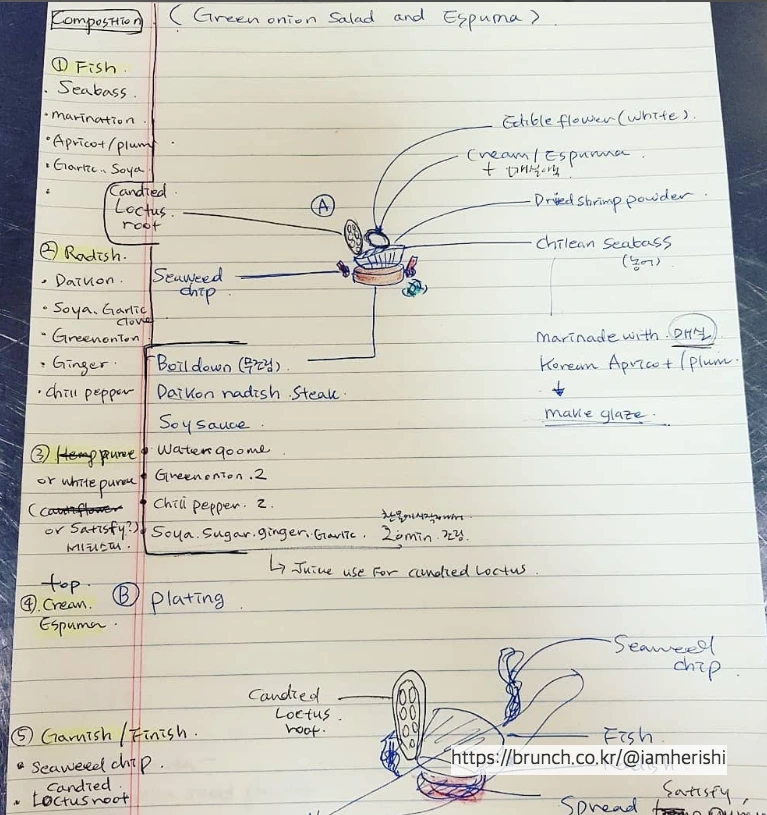 Composition
(Green onion Salad and Espuma)
① Fish.
· Seabass.
· marination.
· Apricot/plum
· Garlic. Soya.
Candied
Loctus
root
② Radish.
· Daikon.
· Soya. Garlic
clove
· Greenonion
· Ginger.
· Chill pepper
③ Hemp puree
or white puree
(cauliflower
or Satisfy?)
top.
④ Cream.
Espuma.
⑤ Garnish / Finish.
· Seaweed chip.
Candied
· Loctusroot
Ⓐ
Edible flower (white).
Cream / Espuma
+ 매실액
Dried shrimp powder
chilean seabass
(농어)
Seaweed
chip
marinade with 매실
Korean Apricot / plum.
↓
make glaze.
Boildown (무조림)
Daikon radish steak.
Soysauce.
· Water 900me
· Greenonion. 2
· Chill pepper. 2.
· Soya. Sugar. ginger. Garlic. 20min.
↳ Juice use for candied Loctus.
Ⓑ plating
Seaweed
chip
Candied
Loctus
root.
Fish
https://brunch.co.kr/@iamherishi
Satisfy,
Spread